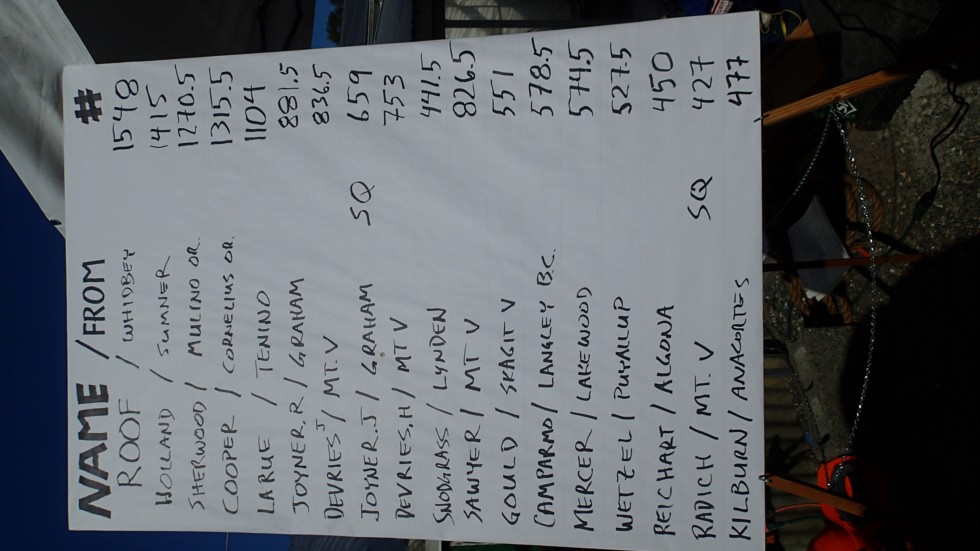 NAME / FROM #
ROOF / WHIDBEY 1548
HOLLAND / SUMNER 1415
SHERWOOD / MULINO OR. 1270.5
COOPER / CORNELIUS OR. 1315.5
LARUE / TENINO 1104
JOYNER.R / GRAHAM 881.5
DEVRIES J / MT. V 836.5
JOYNER.J / GRAHAM SQ 659
DEVRIES,H / MT V 753
SNODGRASS / LYNDEN 441.5
SAWYER / MT V 826.5
GOULD / SKAGIT V 551
CAMPARMO / LANGLEY B.C. 578.5
MERCER / LAKEWOOD 574.5
WETZEL / PUYALLUP 527.5
REICHART / ALGONA 450
RADICH / MT. V SQ 427
KILBURN / ANACORTES 477